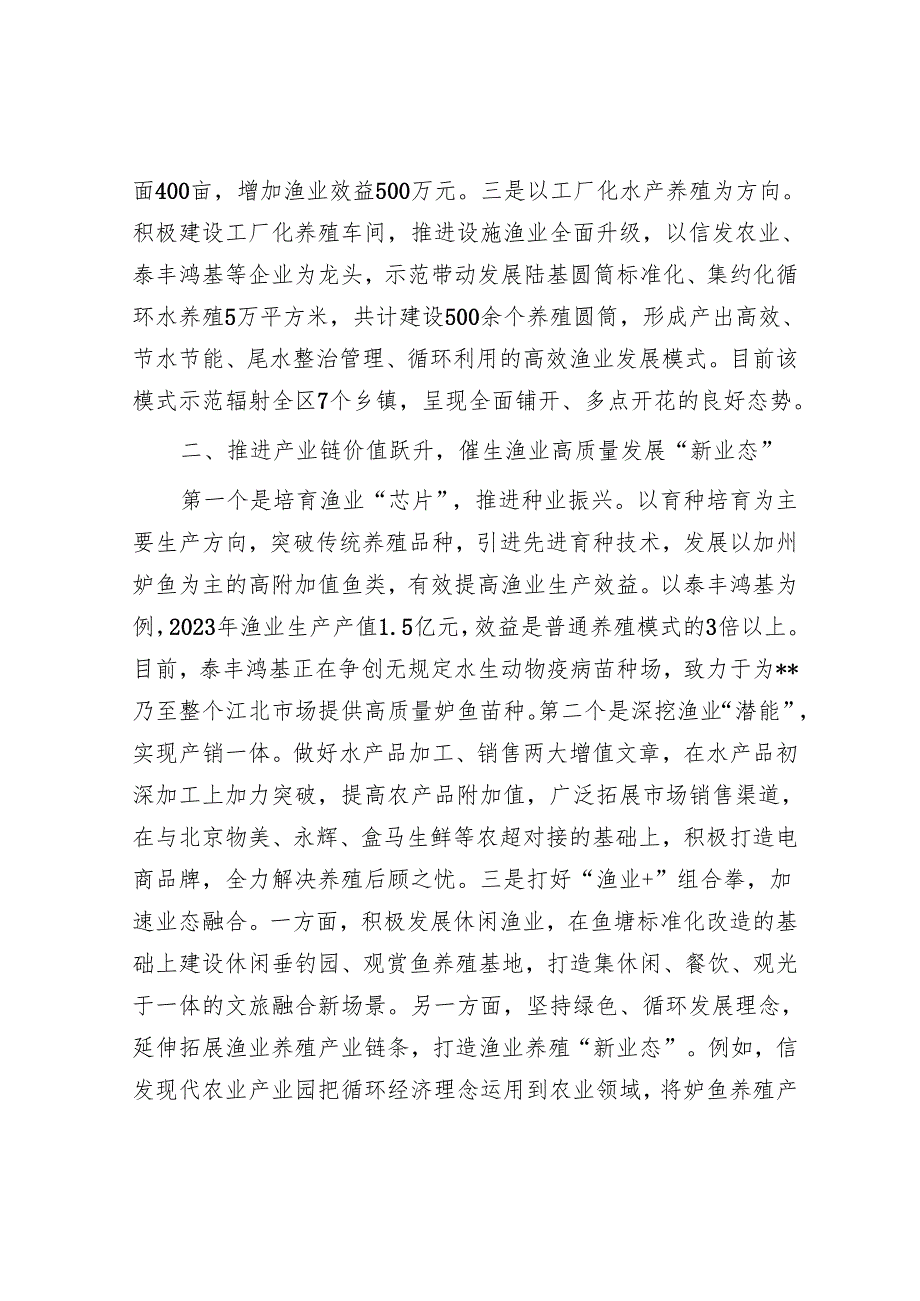 面400亩，增加渔业效益500万元。三是以工厂化水产养殖为方向。
积极建设工厂化养殖车间，推进设施渔业全面升级，以信发农业、
泰丰鸿基等企业为龙头，示范带动发展陆基圆筒标准化、集约化循
环水养殖5万平方米，共计建设500余个养殖圆筒，形成产出高效、
节水节能、尾水整治管理、循环利用的高效渔业发展模式。目前该
模式示范辐射全区7个乡镇，呈现全面铺开、多点开花的良好态势。
二、推进产业链价值跃升，催生渔业高质量发展“新业态”
第一个是培育渔业“芯片”，推进种业振兴。以育种培育为主
要生产方向，突破传统养殖品种，引进先进育种技术，发展以加州
妒鱼为主的高附加值鱼类，有效提高渔业生产效益。以泰丰鸿基为
例，2023年渔业生产产值1.5亿元，效益是普通养殖模式的3倍以上。
目前，泰丰鸿基正在争创无规定水生动物疫病苗种场，致力于为**
乃至整个江北市场提供高质量妒鱼苗种。第二个是深挖渔业“潜能”，
实现产销一体。做好水产品加工、销售两大增值文章，在水产品初
深加工上加力突破，提高农产品附加值，广泛拓展市场销售渠道，
在与北京物美、永辉、盒马生鲜等农超对接的基础上，积极打造电
商品牌，全力解决养殖后顾之忧。三是打好“渔业+”组合拳，加
速业态融合。一方面，积极发展休闲渔业，在鱼塘标准化改造的基
础上建设休闲垂钓园、观赏鱼养殖基地，打造集休闲、餐饮、观光
于一体的文旅融合新场景。另一方面，坚持绿色、循环发展理念，
延伸拓展渔业养殖产业链条，打造渔业养殖“新业态”。例如，信
发现代农业产业园把循环经济理念运用到农业领域，将妒鱼养殖产